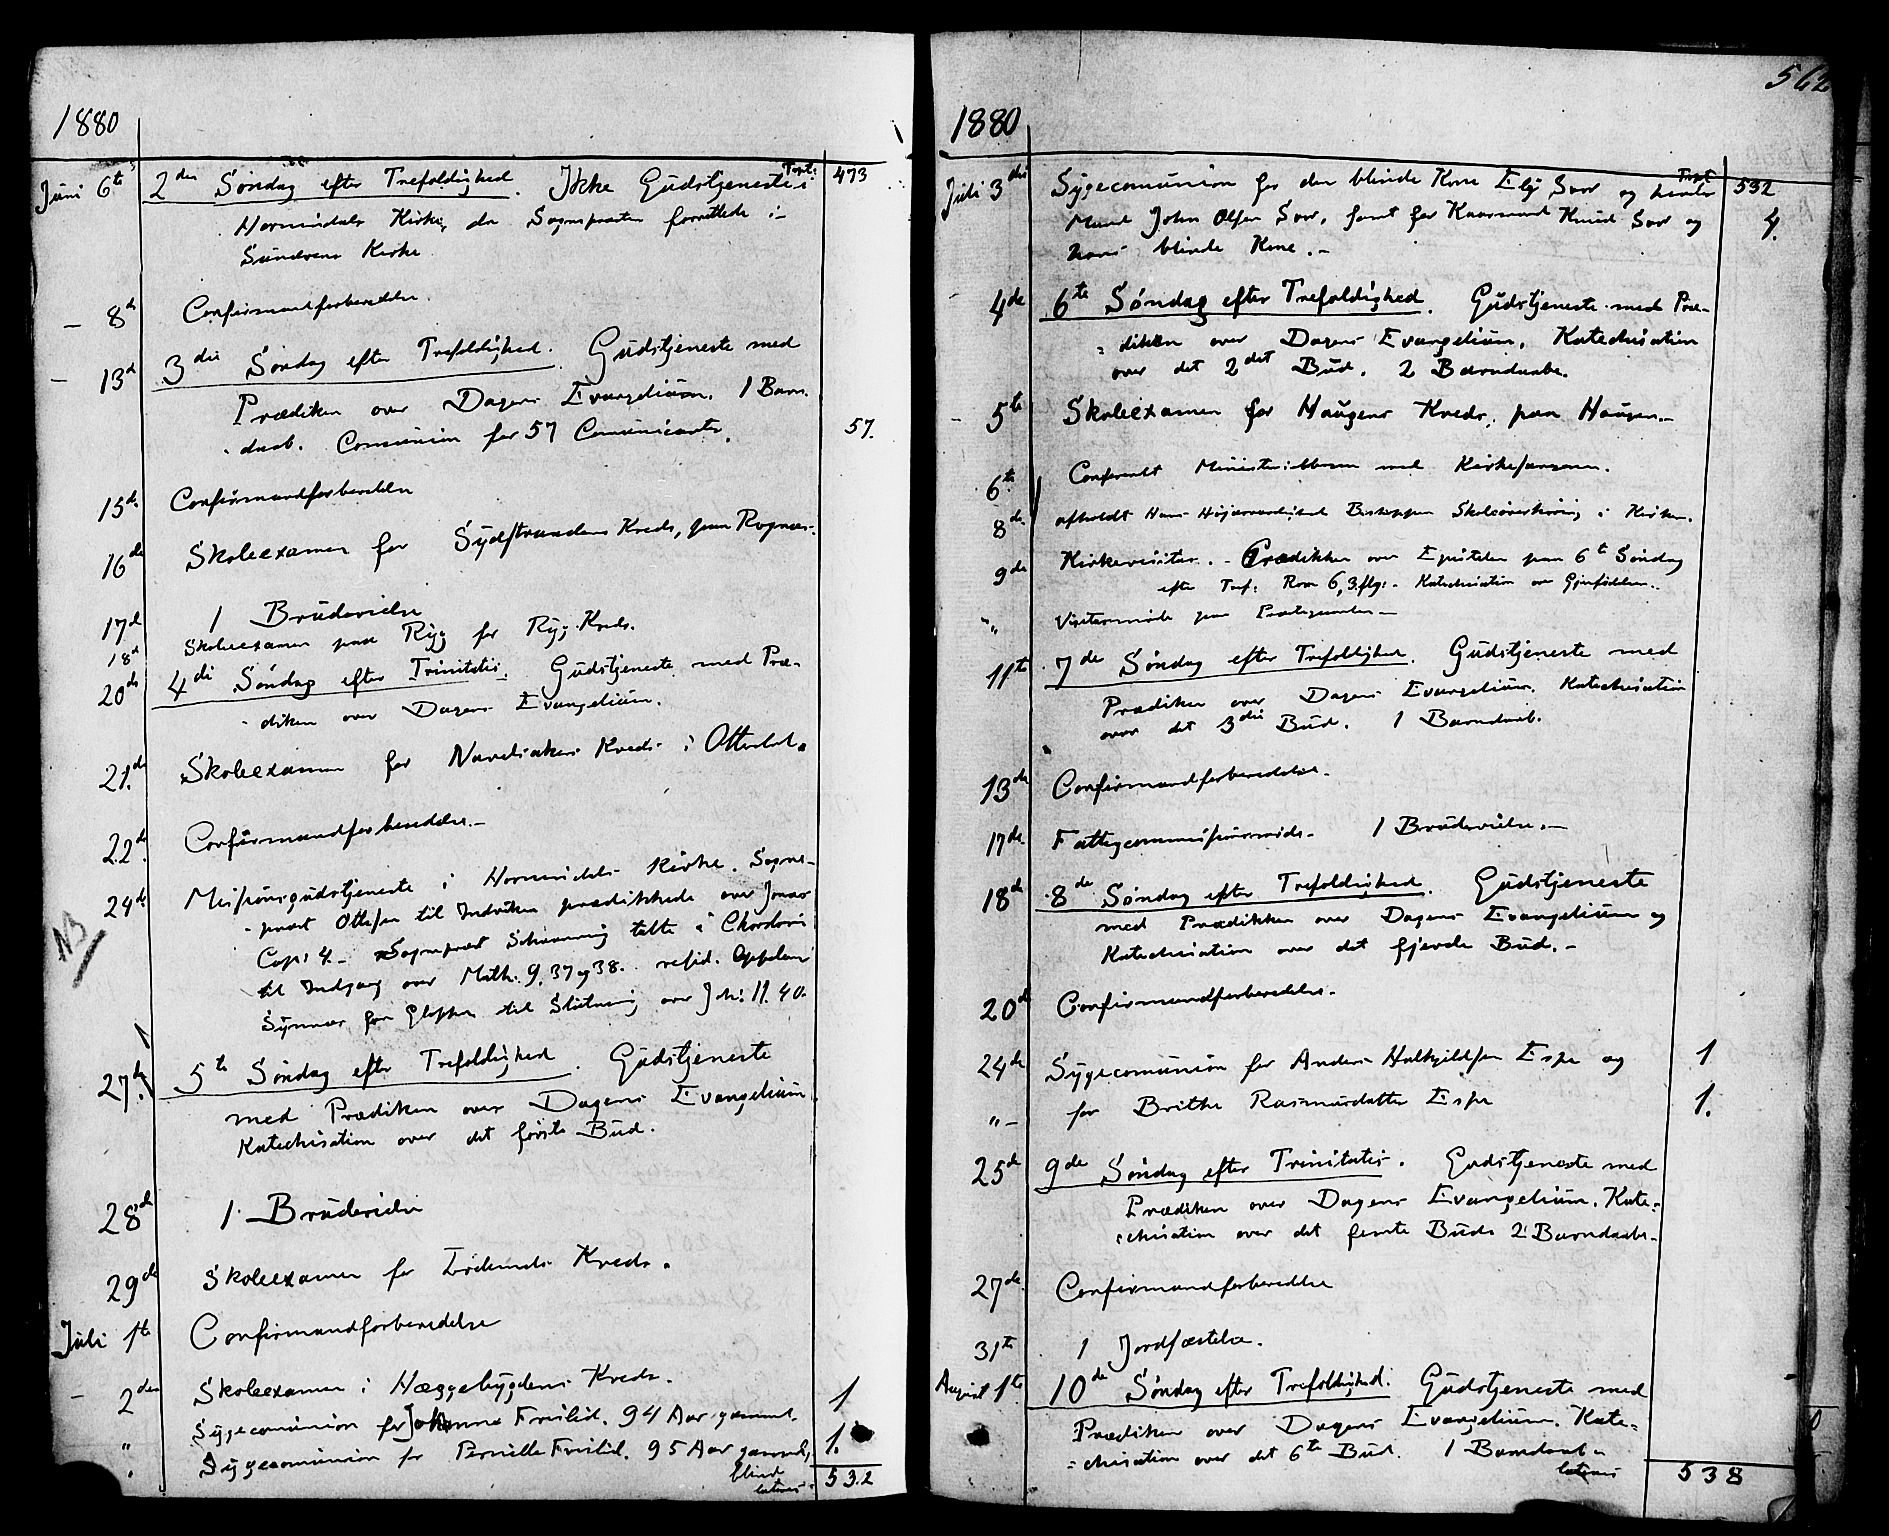 1880
Juni 6te 2den Søndag efter Trefoldighed. Ikke Gudstjeneste i Tspt. 473
Hornindals Kirke, da Sognepresten forrettede i
Kirke
– 8de Confirmandforberedelse.
– 13de 3die Søndag efter Trefoldighed. Gudstjeneste med
Prædiken over Dagens Evangelium. 1 Barn-
daab. Comunion for 57 Comunicanter. 57.
15de Confirmandforberedelse
16de Skoleexamen for Sydstrandens Kreds, paa
17de 1 Brudevielse
18de Skoleexamen paa Ryg for Ryg Kreds.
20de 4di Søndag efter Trinitatis. Gudstjeneste med Præ-
diken over Dagens Evangelium.
21de Skoleexamen for Kreds i
22de Confirmandforberedelse.–
24de Missionsgudstjeneste i Hornindals Kirke. Sogne-
NB prest Ottesen til Indviken prædikkede over Jonas
Cap: 4.– Sogneprest talte i Chordøren
til Indgang over Math. 9, 37 og 38. resid. Capelan
Synnes fra Gloppen til Slutning over Joh: 11. 40.
27de 5te Søndag efter Trefoldighed. Gudstjeneste
med Prædiken over Dagens Evangelium.
Katechisation over det første Bud.
28de 1 Brudevielse
29de Skoleexamen for Kreds.
Juli 1te Confirmandforberedelse
– 2den Skoleexamen i Heggebygdens Kreds.
" Sygecomunion for Johanna Frislid. 94 Aar gammel. 1
" Sygecomunion for Pernille Frislid. 95 Aar gammel, 1.
blind
lateris 532
562
1880
Juli 3die Sygecomunion for den blinde Kone Elj Sor og hendes Tspt 532
Mand John Olsen Sor, samt for Kaarmand Knud Sor og 4.
hans blinde Kone.–
4de 6te Søndag efter Trefoldighed. Gudstjeneste med Præ-
diken over Dagens Evangelium. Katechisation
over det 2det Bud. 2 Barndaabe.
– 5te Skoleexamen for Haugens Kreds, paa Haugen.–
6te med Kirkesangeren.
8de afholdt Hans Højærværdighed Biskoppen i Kirken.
9de Kirkevisitas.– Prædikken over Epistelen paa 6te Søndag
efter Tref: Rom 6, 3 flg:. Katechisation over Gjenfødelsen.
" Visitasmøde paa Præstegaarden –
11te 7de Søndag efter Trefoldighed. Gudstjeneste med
Prædiken over Dagens Evangelium. Katechisation
over det 3die Bud. 1 Barndaab.
13de Confirmandforberedelse.
17de Fattigcommissionsmøde. 1 Brudevielse.–
18de 8de Søndag efter Trefoldighed. Gudstjeneste
med Prædikken over Dagens Evangelium og
Katechisation over det fjerde Bud.–
20de Confirmandforberedelse.
24de Sygecomunion for Anders Halkjeldsen Espe og 1
"– for Brithe Rasmusdatter Espe 1.
25de 9de Søndag efter Trinitatis. Gudstjeneste med
Prædiken over Dagens Evangelium. Kate-
chisation over det femte Bud. 2 Barndaabe.
27de Confirmandforberedelse
31te 1 Jordfæstelse.
August 1te 10de Søndag efter Trefoldighed. Gudstjeneste med
Prædiken over Dagens Evangelium. Kate-
chisation over det 6te Bud. 1 Barndaab.
lateris 538